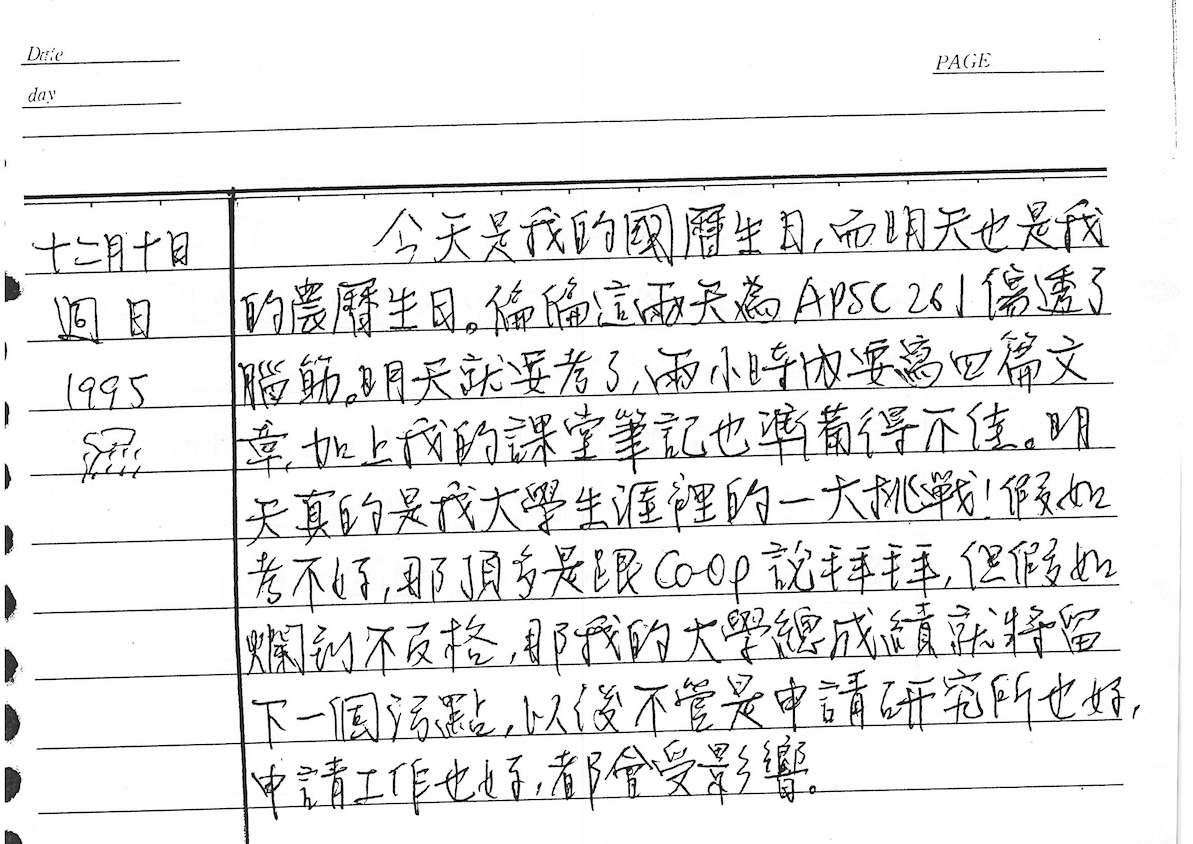 Date
PAGE
day
十二月十日
週日
1995
今天是我的國曆生日,而明天也是我
的農曆生日。偏偏這兩天為APSC 261傷透了
腦筋。明天就要考了,兩小時內要寫四篇文
章,加上我的課堂筆記也準備得不佳。明
天真的是我大學生涯裡的一大挑戰!假如
考不好,那頂多是跟Co-op說拜拜,但假如
爛到不及格,那我的大學總成績就將留
下一個污點,以後不管是申請研究所也好,
申請工作也好,都會受影響。